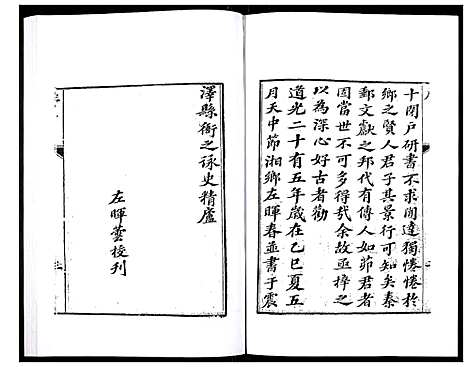 十閉戶研書不求聞達獨惓惓於
鄉之賢人君子其景行可知矣秦
郵文獻之邦代有傳人如茆君者
因當世不可多得哉余故亟梓之
以為深心好古者勸
道光二十有五年歲在乙巳夏五
月天中節湘鄉左暉春並書于震
澤縣銜之詠史精廬
左暉蕓校刊